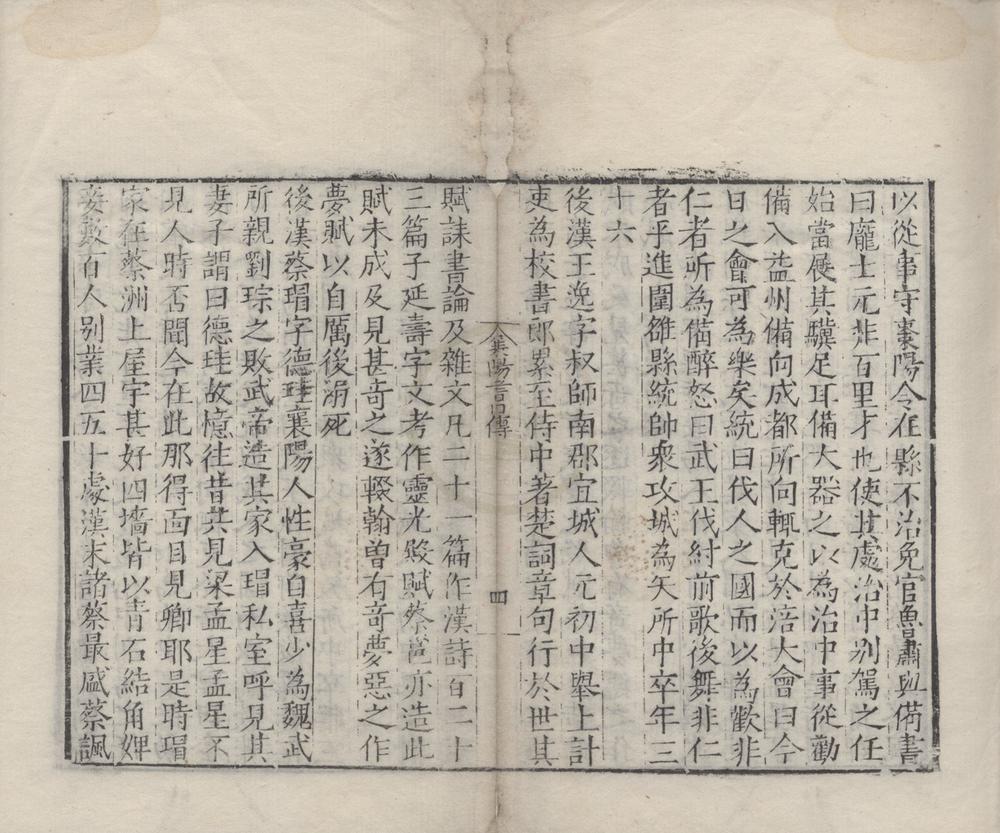 以從事守襄陽令在縣不治免官魯肅與備書
曰龐士元非百里才也使其處治中別駕之任
始當展其驥足耳備大器之以為治中事從勸
備入益州備向成都所向輒克於涪大會曰今
日之會可為樂矣統曰伐人之國而以為歡非
仁者所為備醉怒曰武王伐紂前歌後舞非仁
者乎進圍雒縣統帥衆攻城為矢所中卒年三
十六
後漢王逸字叔師南郡宜城人元初中舉上計
吏為校書郎累至侍中著楚詞章句行於世其
襄陽耆舊傳
四
賦誄書論及雜文凡二十一篇作漢詩百二十
三篇子延壽字文考作靈光殿賦蔡邕亦造此
賦未成及見甚奇之遂輟翰曽有竒夢惡之作
夢賦以自厲後溺死
後漢蔡瑁字德珪襄陽人性豪自喜少為魏武
所親劉琮之敗武帝造其家入瑁私室呼見其
妻子謂曰德珪故憶往昔共見梁孟星孟星不
見人時否聞今在此那得面目見卿耶是時瑁
家在蔡洲上屋宇甚好四墻皆以青石結角婢
妾數百人別業四五十處漢末諸蔡最盛蔡諷